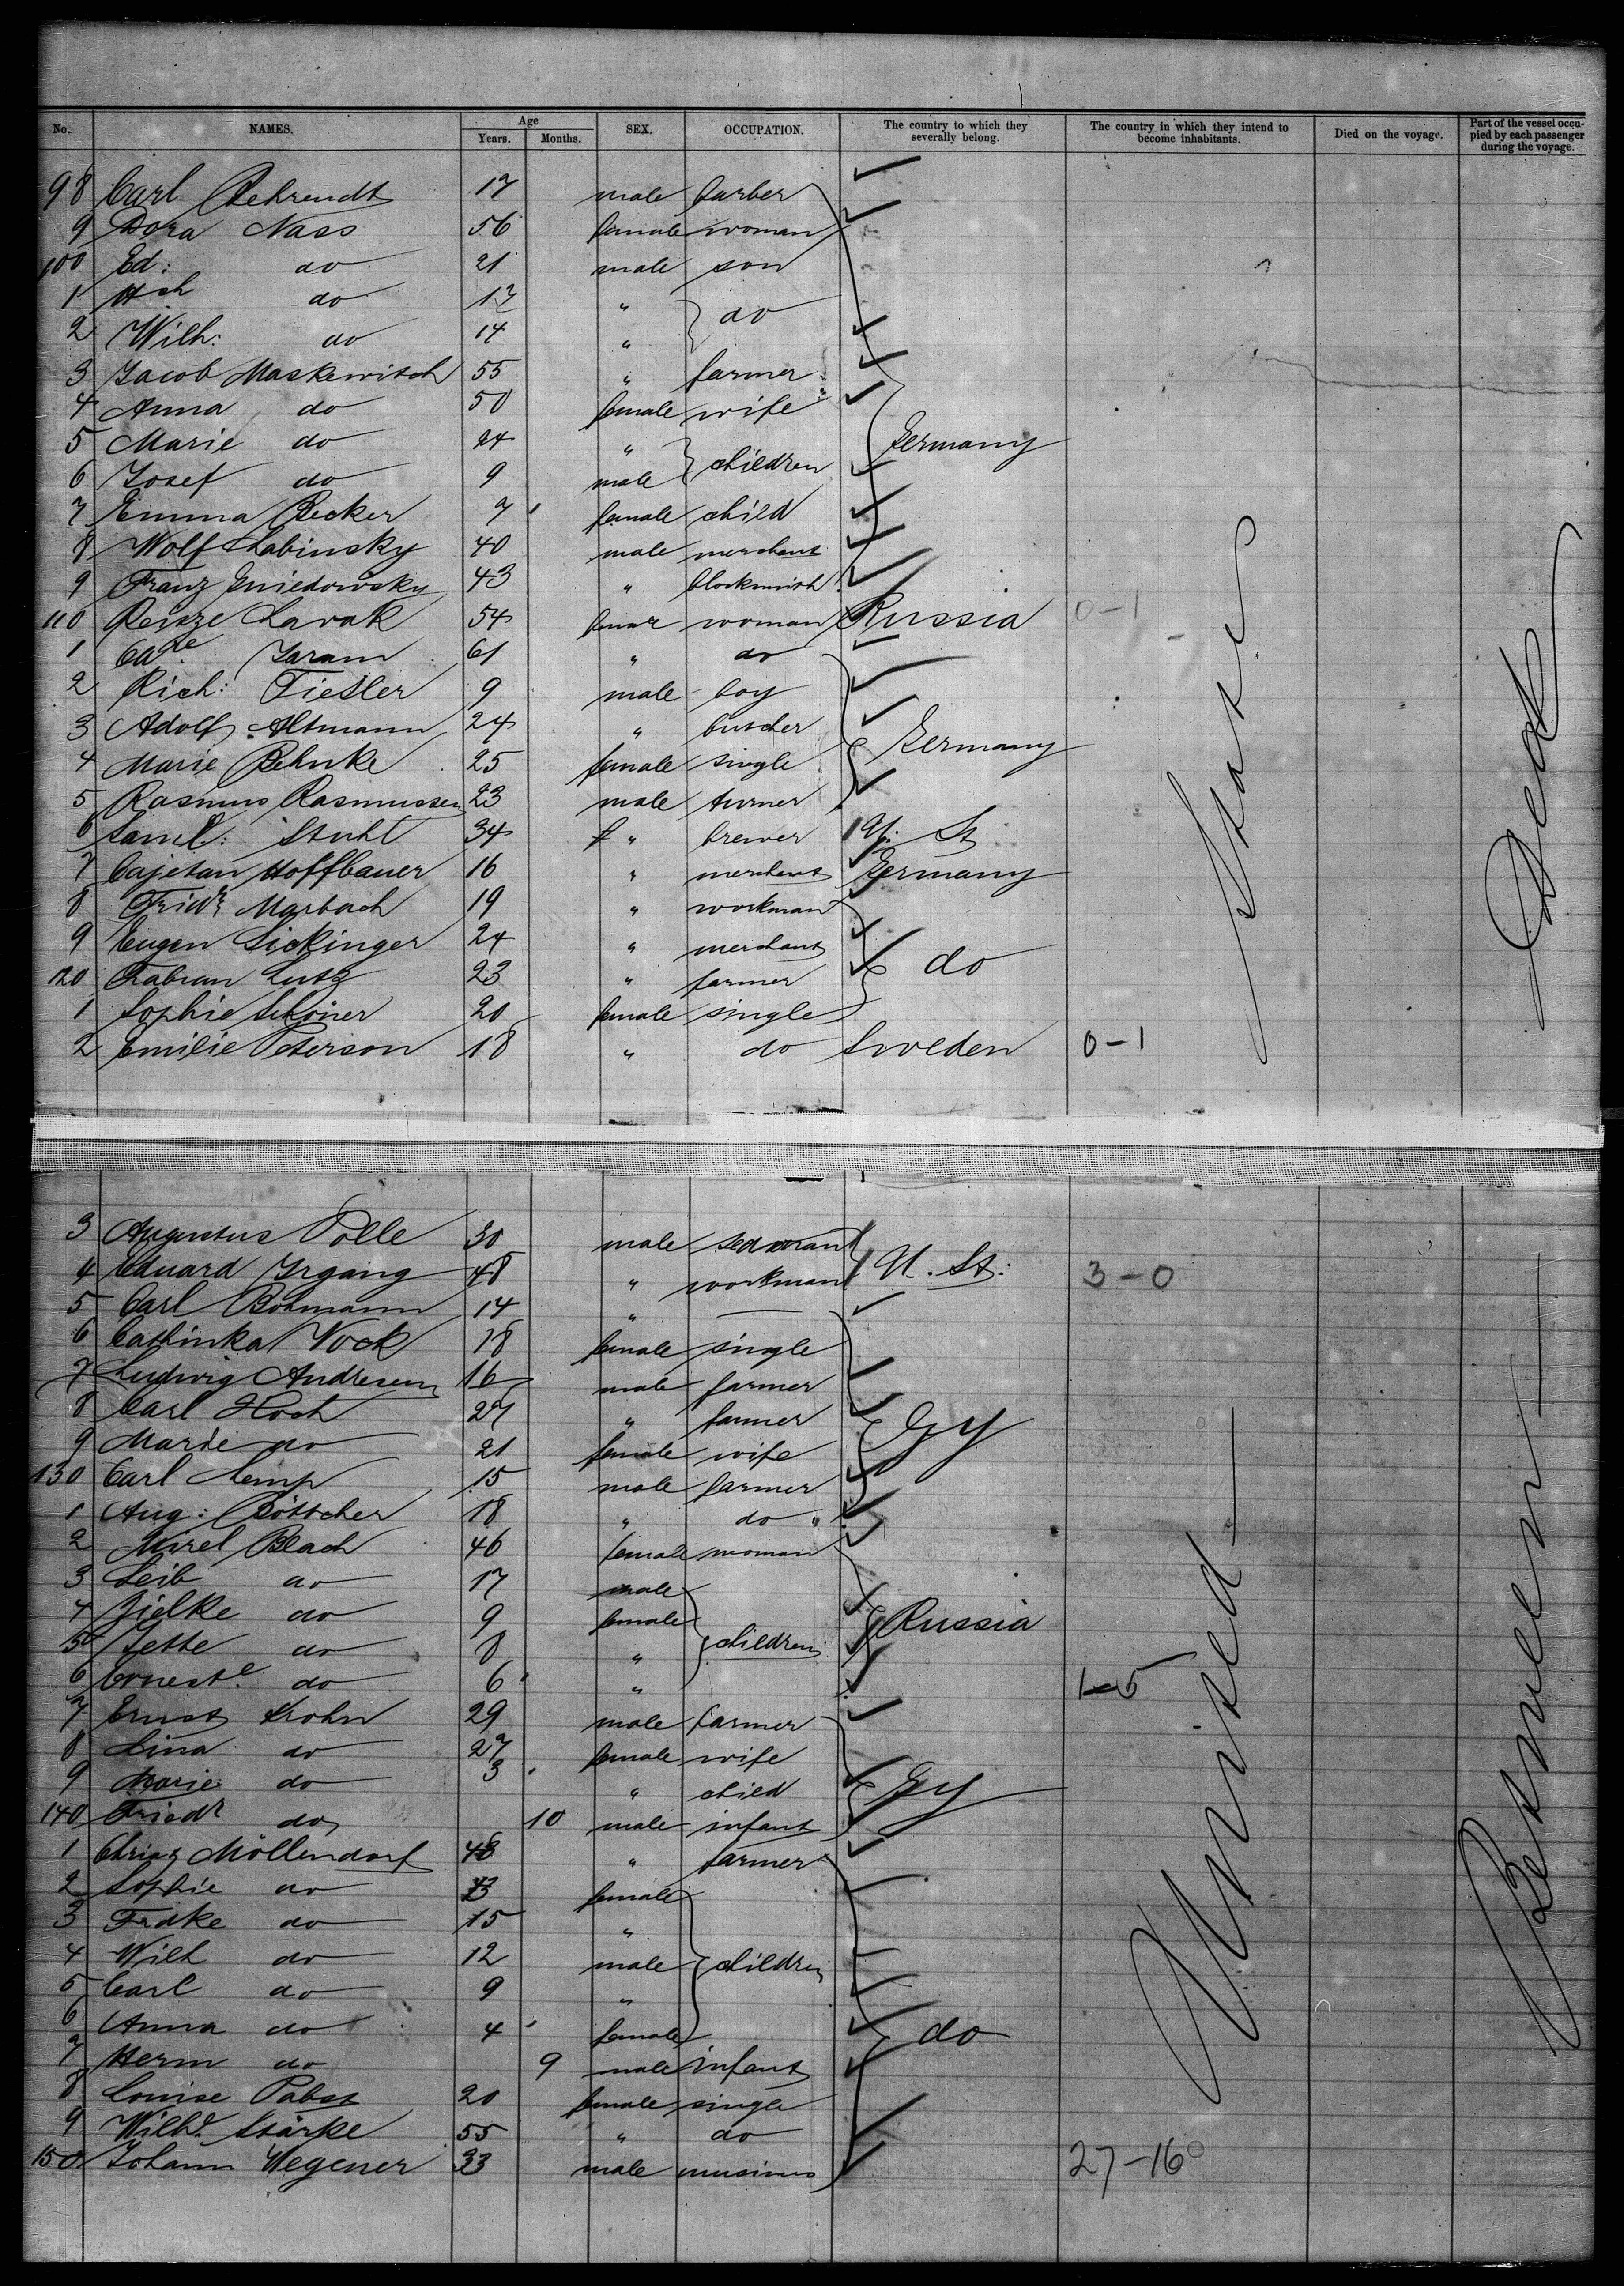 No. NAMES. Age Years. Months. SEX. OCCUPATION. The country to which they severally belong. The country in which they intend to become inhabitants. Died on the voyage. Part of the vessel occupied by each passenger during the voyage.
98 Carl Behrendt 17 male barber
9 Dora Nass 56 female woman
100 Ed: do 21 male son
1 Hch do 17 "
do
2 Wilh: do 14 "
3 Jacob Maskewitsch 55 " farmer
4 Anna do 50 female wife
5 Marie do 24 " Germany
children
6 Josef do 9 male
7 Emma Becker 7 female child
8 Wolf Labinsky 40 male merchant
9 Franz Gniedowsky 43 " blocksmith
110 Reisze Lavak 54 woman Russia 0-1
1 Cade Jaram 61 " do
2 Rich: Tietler 9 male boy
3 Adolf Altmann 24 " butcher
4 Marie Behnke 25 female single Germany
5 Rasmus Rasmussen 23 male turner
6 Saml: Stuhl 34 " brewer U. St
7 Cajetan Hoffbauer 16 " merchant Germany
8 Friedr Marbach 19 " workman
9 Eugen Sickinger 24 " merchant do
120 Fabian Lutz 23 " farmer
1 Sophie Schöner 20 female single
2 Emilie Peterson 18 " do Sweden 0-1
3 Augustus Polle 30 male
4 Eduard Irgang 48 " workman U. St: 3-0
5 Carl Bohmann 14 "
6 Cathinka Vock 18 female single
7 Ludwig Andresen 16 male farmer
8 Carl Hoch 27 " farmer Gy
9 Marie do 21 female wife
130 Carl Kemp 15 male farmer
1 Aug: Böttcher 18 " do
2 Mirel Blach 46 female woman
3 Leib do 17 male
4 Zielke do 9 female Russia
children
5 Jette do 8 "
6 Erneste do 6 " 1-5
7 Ernst Krohn 29 male farmer
8 Lina do 27 female wife
9 Marie do 3 " child Gy
140 Friedr do 10 male infant
1 Möllendorf 48 " farmer
2 Sophie do female
3 Frdke do 15 "
4 Wilh do 12 male children
5 Carl do 9 "
6 Anna do 4 female do
7 Herm do 9 male infant
8 Louise Pabst 20 female single
9 Wilhe Stärke 55 " do
150 Johann Wegener 33 male 27-16
United States
Between Deck